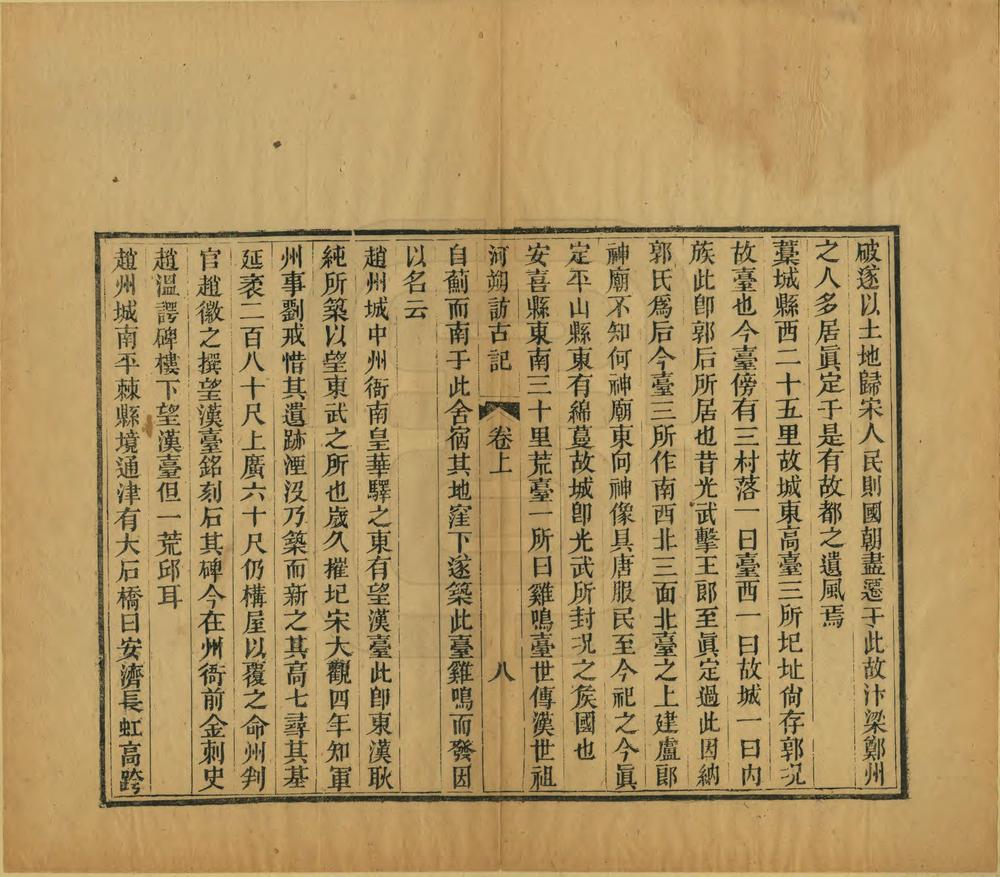 破遂以土地歸宋人民則國朝盡遷于此故汴梁鄭州
之人多居眞定于是有故都之遺風焉
藁城縣西二十五里故城東高臺三所圮址尙存郭況
故臺也今臺傍有三村落一曰臺西一曰故城一曰內
族此卽郭后所居也昔光武擊王郞至眞定過此因納
郭氏爲后今臺三所作南西北三面北臺之上建盧郞
神廟不知何神廟東向神像具唐服民至今祀之今眞
定平山縣東有綿蔓故城卽光武所封況之矦國也
安喜縣東南三十里荒臺一所曰雞鳴臺世傳漢世祖
河朔訪古記 卷上 八
自薊而南于此舍宿其地窪下遂築此臺雞鳴而發因
以名云
趙州城中州衙南皇華驛之東有望漢臺此卽東漢耿
純所築以望東武之所也歲久摧圮宋大觀四年知軍
州事劉戒惜其遺跡湮沒乃築而新之其高七尋其基
延袤二百八十尺上廣六十尺仍構屋以覆之命州判
官趙徽之撰望漢臺銘刻石其碑今在州衙前金刺史
趙溫諤碑樓下望漢臺但一荒邱耳
趙州城南平棘縣境通津有大石橋曰安濟長虹高跨